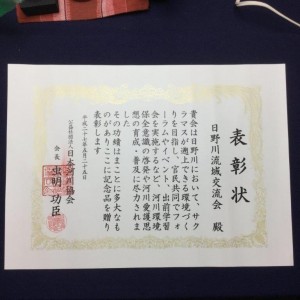 表彰状
日野川流域交流会 殿
貴会は日野川において、サク
ラマスが遡上できる環境づく
りを目指し、官民共同でフォ
ーラムやイベント、出前学習
会を実施するなど、河川環境
保全意識の啓発や河川愛護思
想の育成・普及に尽力されま
した
その功績はまことに多大なも
のがありここに記念品を贈り
表彰します
平成二十七年五月二十五日
公益社団法人 日本河川協会
会長 虫明 功臣